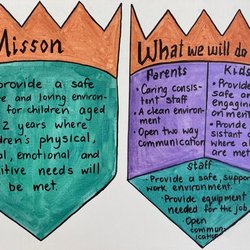 Misson
provide a safe
and loving environ-
for children aged
2 years where
physical,
emotional and
needs will
be met.
What we will do
Parents
• Caring consis-
tent staff
• A clean environ-
ment
• Open two way
communication
Kids
Provide
safe an
engagin
onment
Provide
sistant c
where al
are met
Staff
• Provide a safe, support
work environment.
• Provide equipment
needed for the job,
• Open
commun-
ication